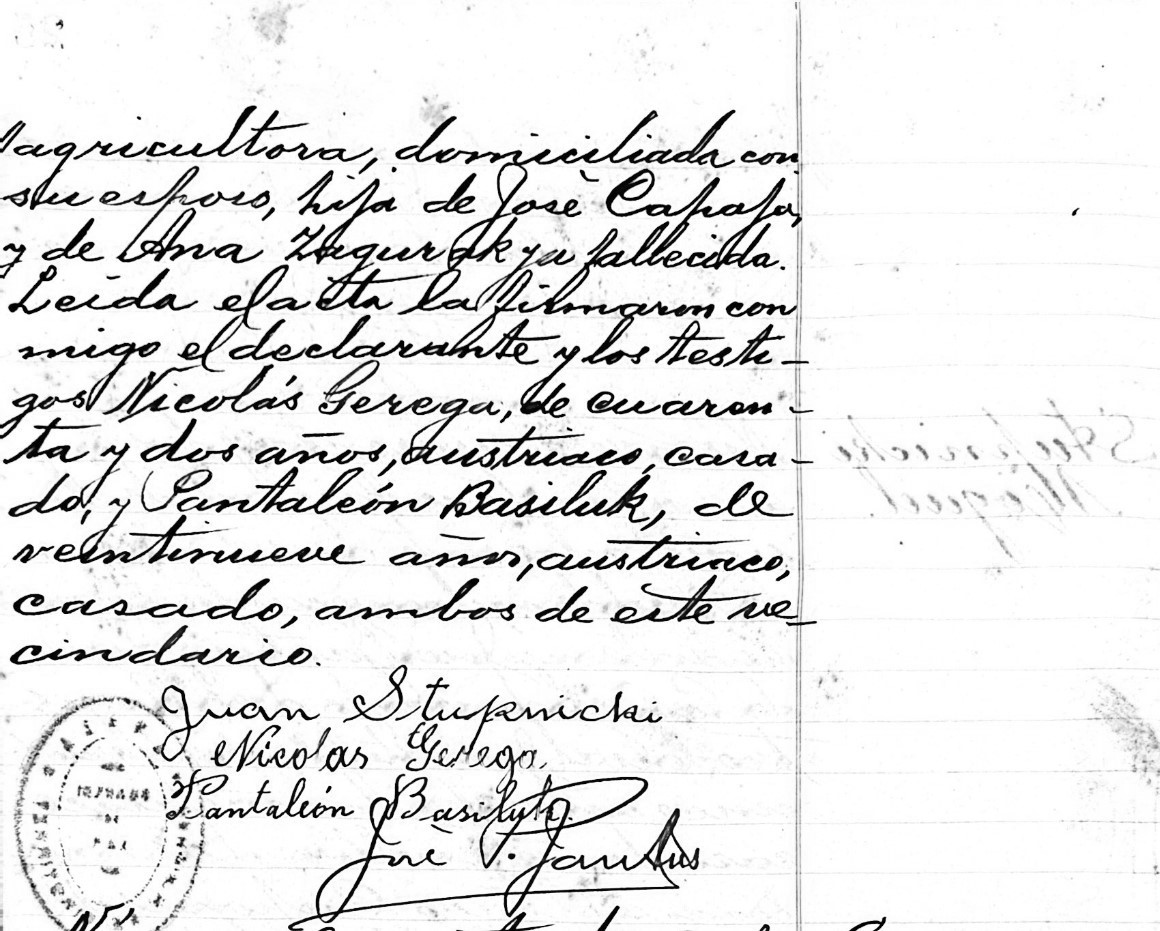 agricultora, domiciliada con
su esposo, hija de José Capapa,
y de Ana Zagurak ya fallecida.
Leida el acta la firmaron con
migo el declarante y los testi-
gos Nicolás Gerega, de cuaren-
ta y dos años, austriaco, casa-
do, y Pantaleón Basiluk, de
veintinueve años, austriaco,
casado, ambos de este ve-
cindario.
Juan Stupnicki
Nicolas Gerega
Pantaleón Basilyk.
José P.